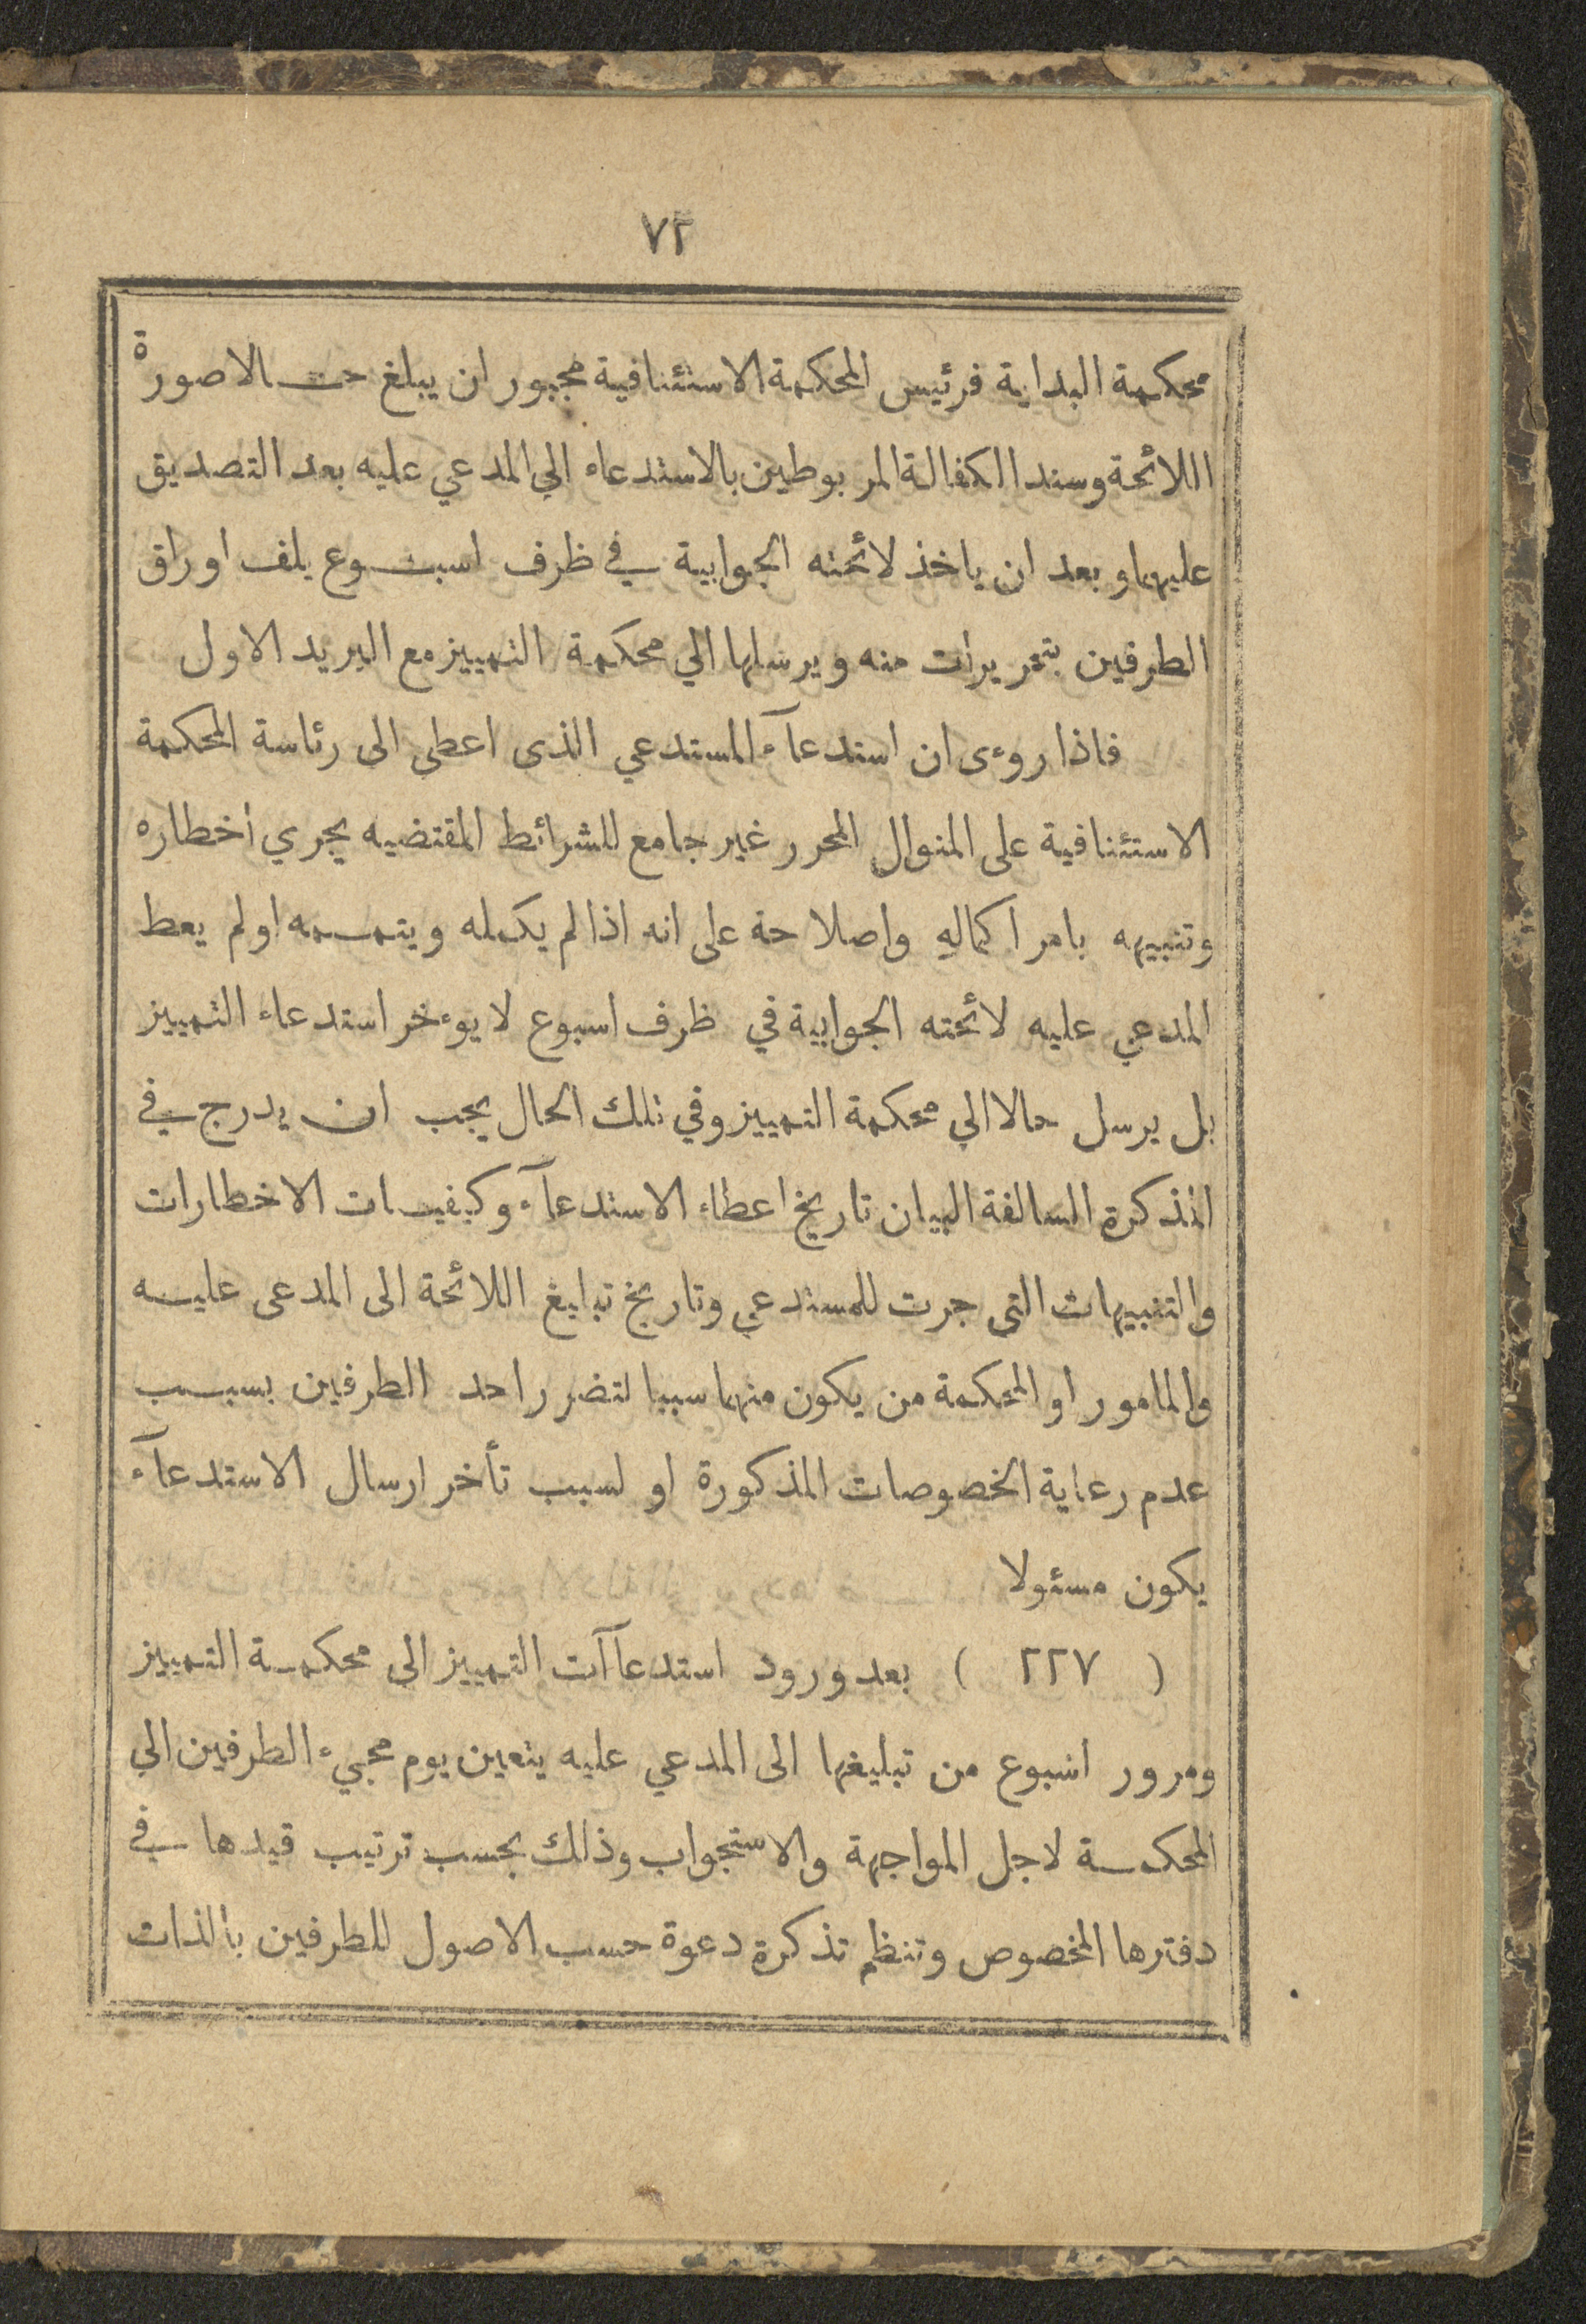 ٧٢
محكمة البداية فرئيس المحكمة الاستئنافية مجبور ان يبلغ حت الاصورة
اللائحة وسند الكفالة المربوطين بالاستدعاء الي المدعي عليه بعد التصديق
عليهما وبعد ان ياخذ لائحته الجوابية في ظرف اسبوع يلف اوراق
الطرفين بتحريرات منه ويرسلها الي محكمة التمييز مع البريد الاول
فاذا روءى ان استدعآء المستدعي الذى اعطي الى رئاسة المحكمة
الاستئنافية على المنوال المحرر غير جامع للشرائط المقتضيه يجري اخطاره
وتنبيهه بامر اكماله واصلاحة على انه اذا لم يكمله ويتممه او لم يعط
المدعي عليه لائحته الجوابية في ظرف اسبوع لا يوءخر استدعاء التمييز
بل يرسل حالا الي محكمة التمييز وفي تلك الحال يجب ان يدرج في
التذكرة السالفة البيان تاريخ اعطاء الاستدعآء وكيفيات الاخطارات
والتنبيهات التى جرت للمستدعي وتاريخ تبليغ اللائحة الى المدعى عليه
والمامور او المحكمة من يكون منهما سببا لتضرر احد الطرفين بسبب
عدم رعاية الخصوصات المذكورة او لسبب تأخر ارسال الاستدعآء
يكون مسئولا
( ٢٢٧ ) بعد ورود استدعاآت التمييز الى محكمة التمييز
ومرور اسبوع من تبليغها الى المدعي عليه يتعين يوم مجيء الطرفين الي
المحكمة لاجل المواجهة والاستجواب وذلك بحسب ترتيب قيدها في
دفترها المخصوص وتنظم تذكرة دعوة حسب الاصول للطرفين بالذات